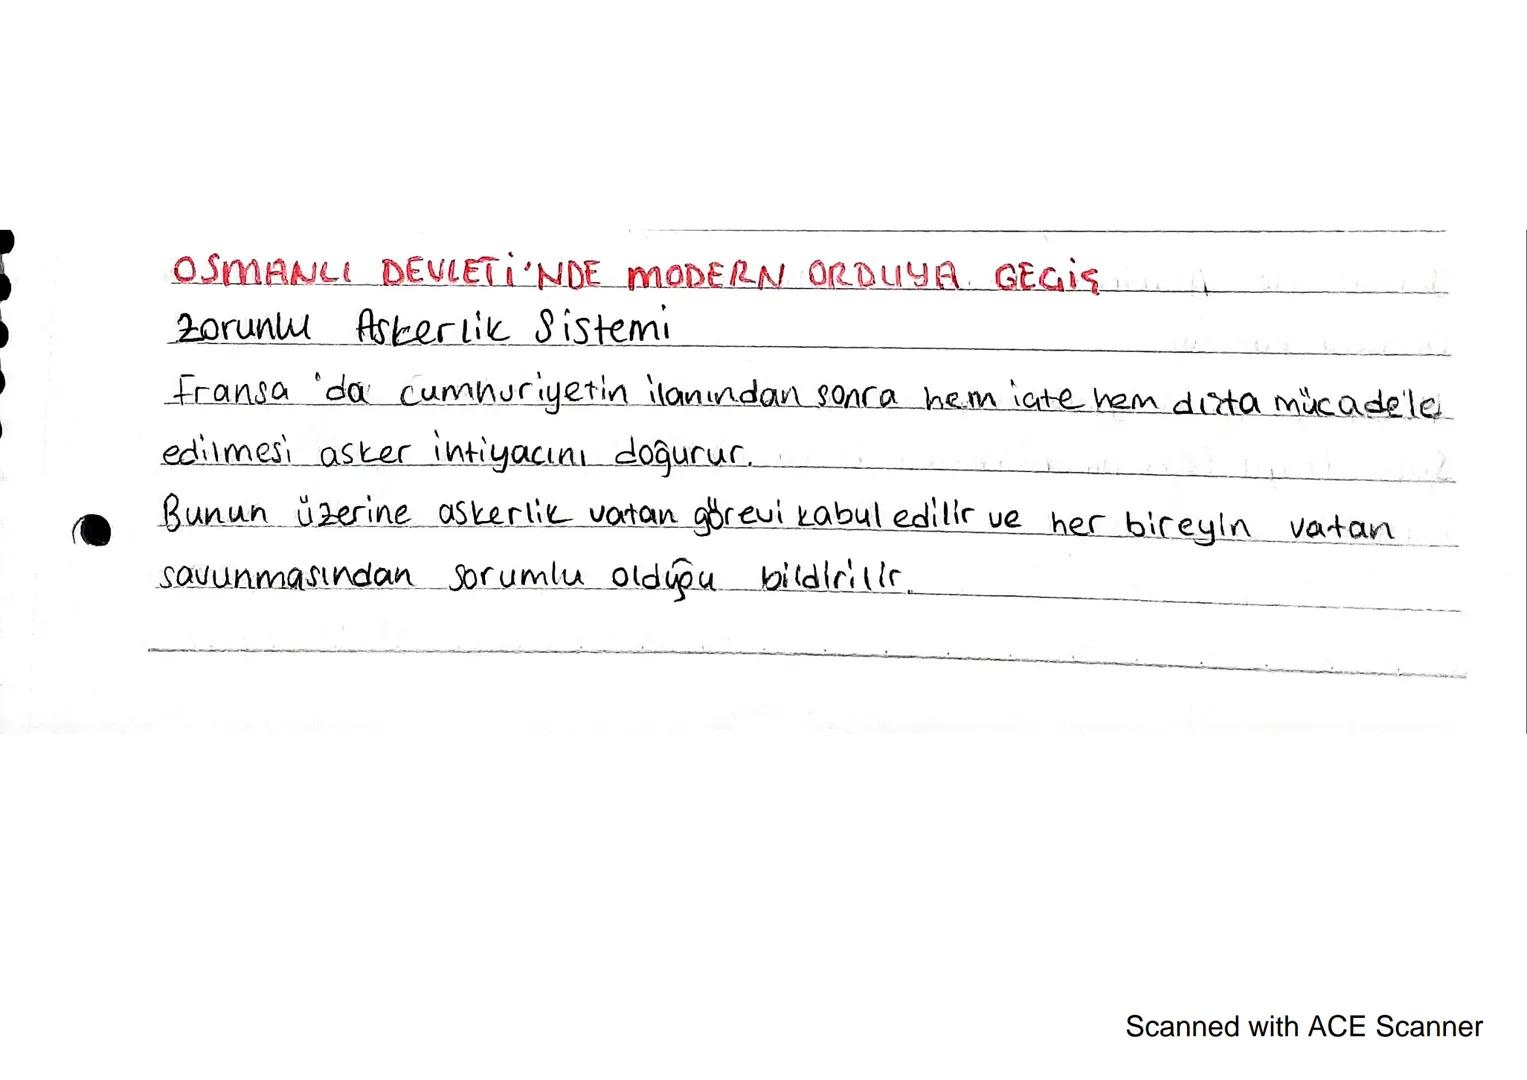 OSMANLI DEVLETİ'NDE MODERN ORDUYA GEÇİŞ
Zorunlu Askerlik Sistemi
Fransa'da cumhuriyetin ilanından sonra hem içte hem dışta mücadele
edilmesi asker ihtiyacını doğurur.
Bunun üzerine askerlik vatan görevi kabul edilir ve her bireyin vatan
savunmasından sorumlu olduğu bildirilir.
Scanned with ACE Scanner